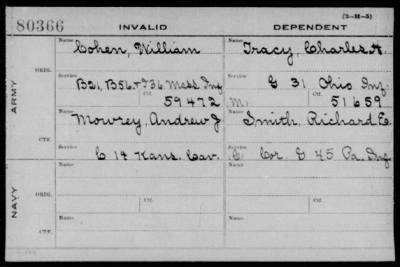 (3-H-5)
80366 INVALID DEPENDENT
Name Cohen, William Name Tracy, Charles A.
ORIG.
Service B21, B56, & I36 Mass. Inf. Service G 31 Ohio Inf.
Ctf. 59472 M. Ctf. 51659
ARMY
Name Mowrey, Andrew J Name Smith, Richard E.
CTF.
Service C 14 Kans. Cav. Service C. Cor. G 45 Pa. Inf
NAVY
Name Name
ORIG.
Ctf. Ctf.
Name Name
CTF.